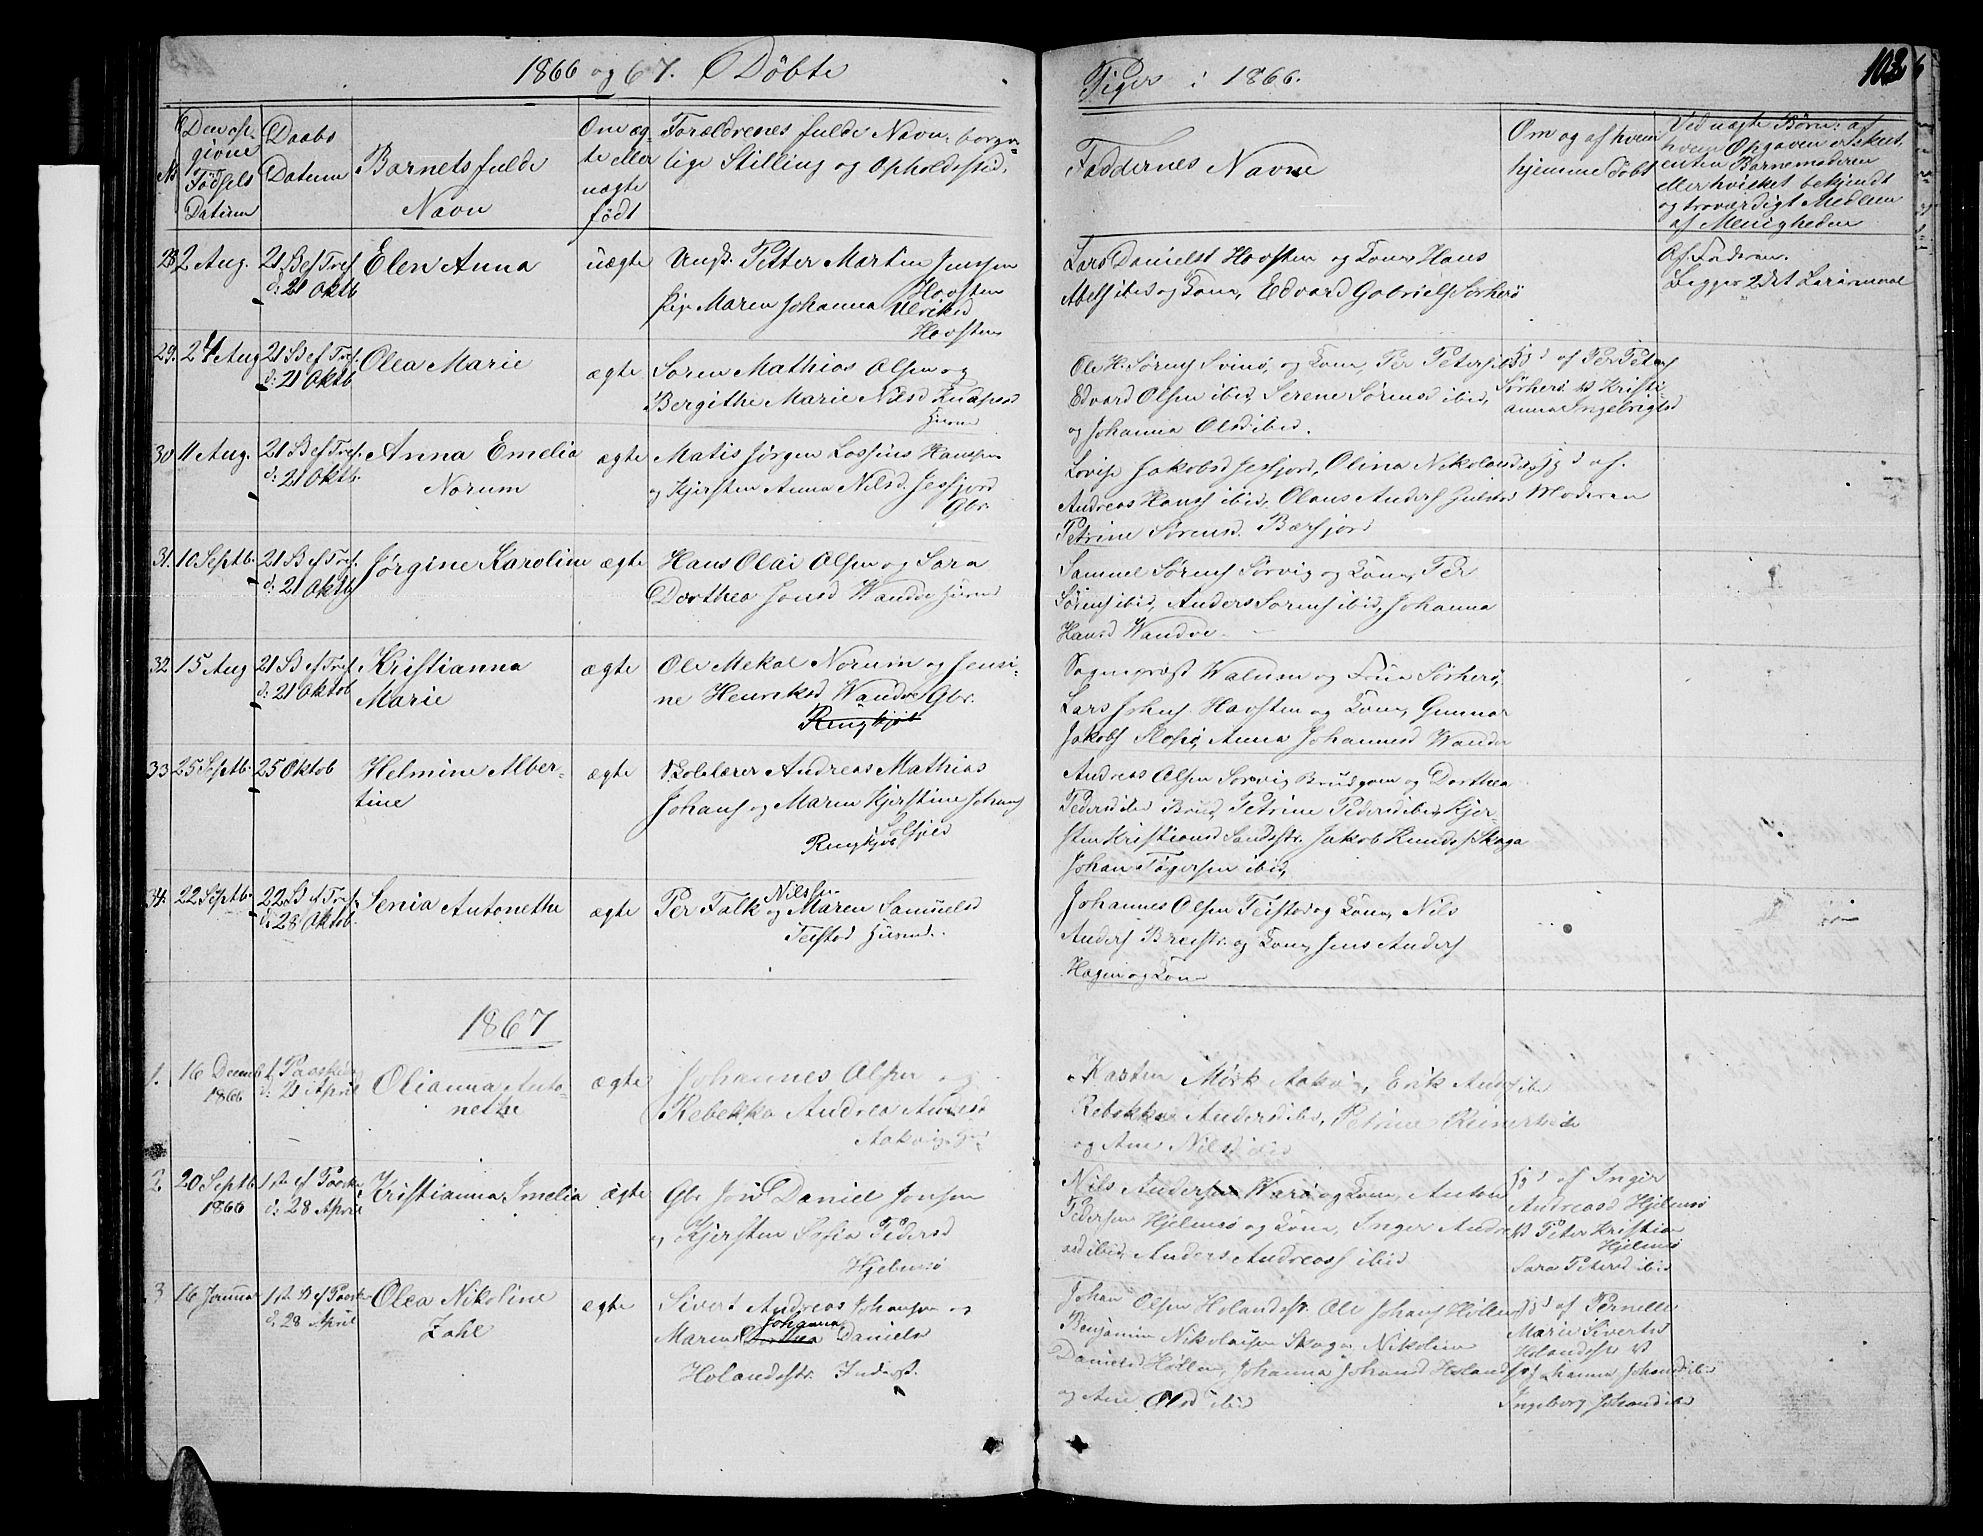 1866 og 67. Døbte
Piger i 1866.
103
No
Den op-
givne
Fødsels
Datum
Daabs
Datum
Barnets fulde
Navn
Om æg-
te eller
uægte
født
Forældrenes fulde Navn, borger-
lige Stilling og Opholdssted.
Faddernes Navne
Om og af hvem
hjemmedøbt
Ved uægte Børn: af
hvem Opgaven er skeet
enten Barnemoderen
eller hvilket bekjendt
og troværdigt Medlem
af Menigheden
28 2 Aug. 21 S ef Tref.
d: 21 Oktb
Elen Anna
uægte
Ungk. Petter Martin Jenssen
Hovsten
Pige Maren Johanna Ulriksd
Hovsten
Lars Danielss Hovsten og Kone, Hans
Abelss ibid og Kone, Edvard Gabriels Sørherø
Af Faderen.
Begges 2det Leiermaal
29. 24 Aug 21 S ef Tref.
d: 21 Oktb.
Olea Marie
ægte
Søren Mathias Olsen og
Bergithe Marie Nilsd
Huusm
Ole H. Sørens Svinø, og Kone, Per Peters ibid
Edvard Olsen ibid, Serene Sørensd ibid,
og Johanna Olsd ibid.
Hjd af Per Peters
Sørherø vs Kristi-
anna Ingebrigtsd
30 11 Aug. 21 S ef Tref.
d: 21 Oktb.
Anna Emelia
Norum
ægte
Matis Jørgen Lossius Hanssen
og Kjersten Anna Nilsd. Jesfjord
Gbr.
Lovise Jakobsd Jesfjord, Olina Nikolaisd
Andreas Hanss ibid, Olaus Anderss
Petrine Sørensd. Bærfjord
Hjd af
Moderen
31. 10 Septb. 21 S ef Tref.
d: 21 Oktb
Jørgine Karoline
ægte
Hans Olai Olsen og Sara
Dorthea Jonsd Wandve Husmd
Samuel Sørens Sørvig og Kone, Per
Sørens ibid, Anders Sørens ibid, Johanna
Hansd Wandve.
32. 15 Aug 21 S ef Tref.
d: 21 Oktob
Kristianna
Marie
ægte
Ole Mekal Norum og Jensi-
ne Henriksd Wandve Gbr.
Ringkjøb
Sogneprest Walnum og Frue Sørherø,
Lars Johns. Hovsten og Kone, Gunnar
Jakobs Slapø, Anna Johannesd Wandve
33 25 Septb. 25 Oktob
Helmine Alber-
tine
ægte
Skolelærer Andreas Mathias
Johans og Maren Kjerstine Johans
Ringkjøb
Andreas Olsen Sørvig Brudgom og Dorthea
Pedersd ibid Brud, Petrine Pedersd ibid, Kjer-
sten Kristiansd Sandstr. Jakob Knuds Skaga
Johan Tøgersen ibid,
34. 22 Septb. 22 S ef Tref.
d: 28 Oktob.
Senia Antonethe
ægte
Per Falk Nilssen og Maren Samuelsd
Teistad Husmd.
Johannes Olsen Teistad og Kone, Nils
Anders Breistr. og Kone, Jens Anders
Hagen og Kone
1867
1. 16 Decemb
1866
1 Paaskedag
d: 21 April
Olianna Anto-
nethe
ægte
Johannes Olsen og
Rebekka Andrea Andersd
Aakvig
Karsten Mørk Aakvig, Erik Anders ibid
Rebekka Andersd ibid, Petrine Reinertsd ibid
og Ane Nilsd ibid
2. 20 Septb
1866
1 S ef Paaske
d: 28 April
Kristianna Imelia
ægte
Gbr Jons Daniel Jonsen
og Kjersten Sofia Pedersd
Hjelmsø
Nils Andersen Warø og Kone, Anton
Pedersen Hjelmsø og Kone, Inger Andre-
asd ibid, Anders Andreass ibid
Hjd af Inger
Andreasd Hjelmsø
vs Peter Kristian
Hjelmsø
Sara Petersd ibid
3 16 Januar 1 S ef Paaske
d. 28 April
Olea Nikoline
Zahl
ægte
Sivert Andreas Johansen og
Maren Dorthea Johanna Danielsd
Holandsstr. Inderst.
Johan Olsen Holandsstr. Ole Johans Høllen
Benjamin Nikolaisen Skaga, Nikoline
Danielsd Høllen, Johanna Johansd Holands
og Ane Olsd ibid
Hjd af Pernelle
Marie Sivertsd
Holandsstr vs
Johanna Johansd ibid
Ingeborg Johansd ibid